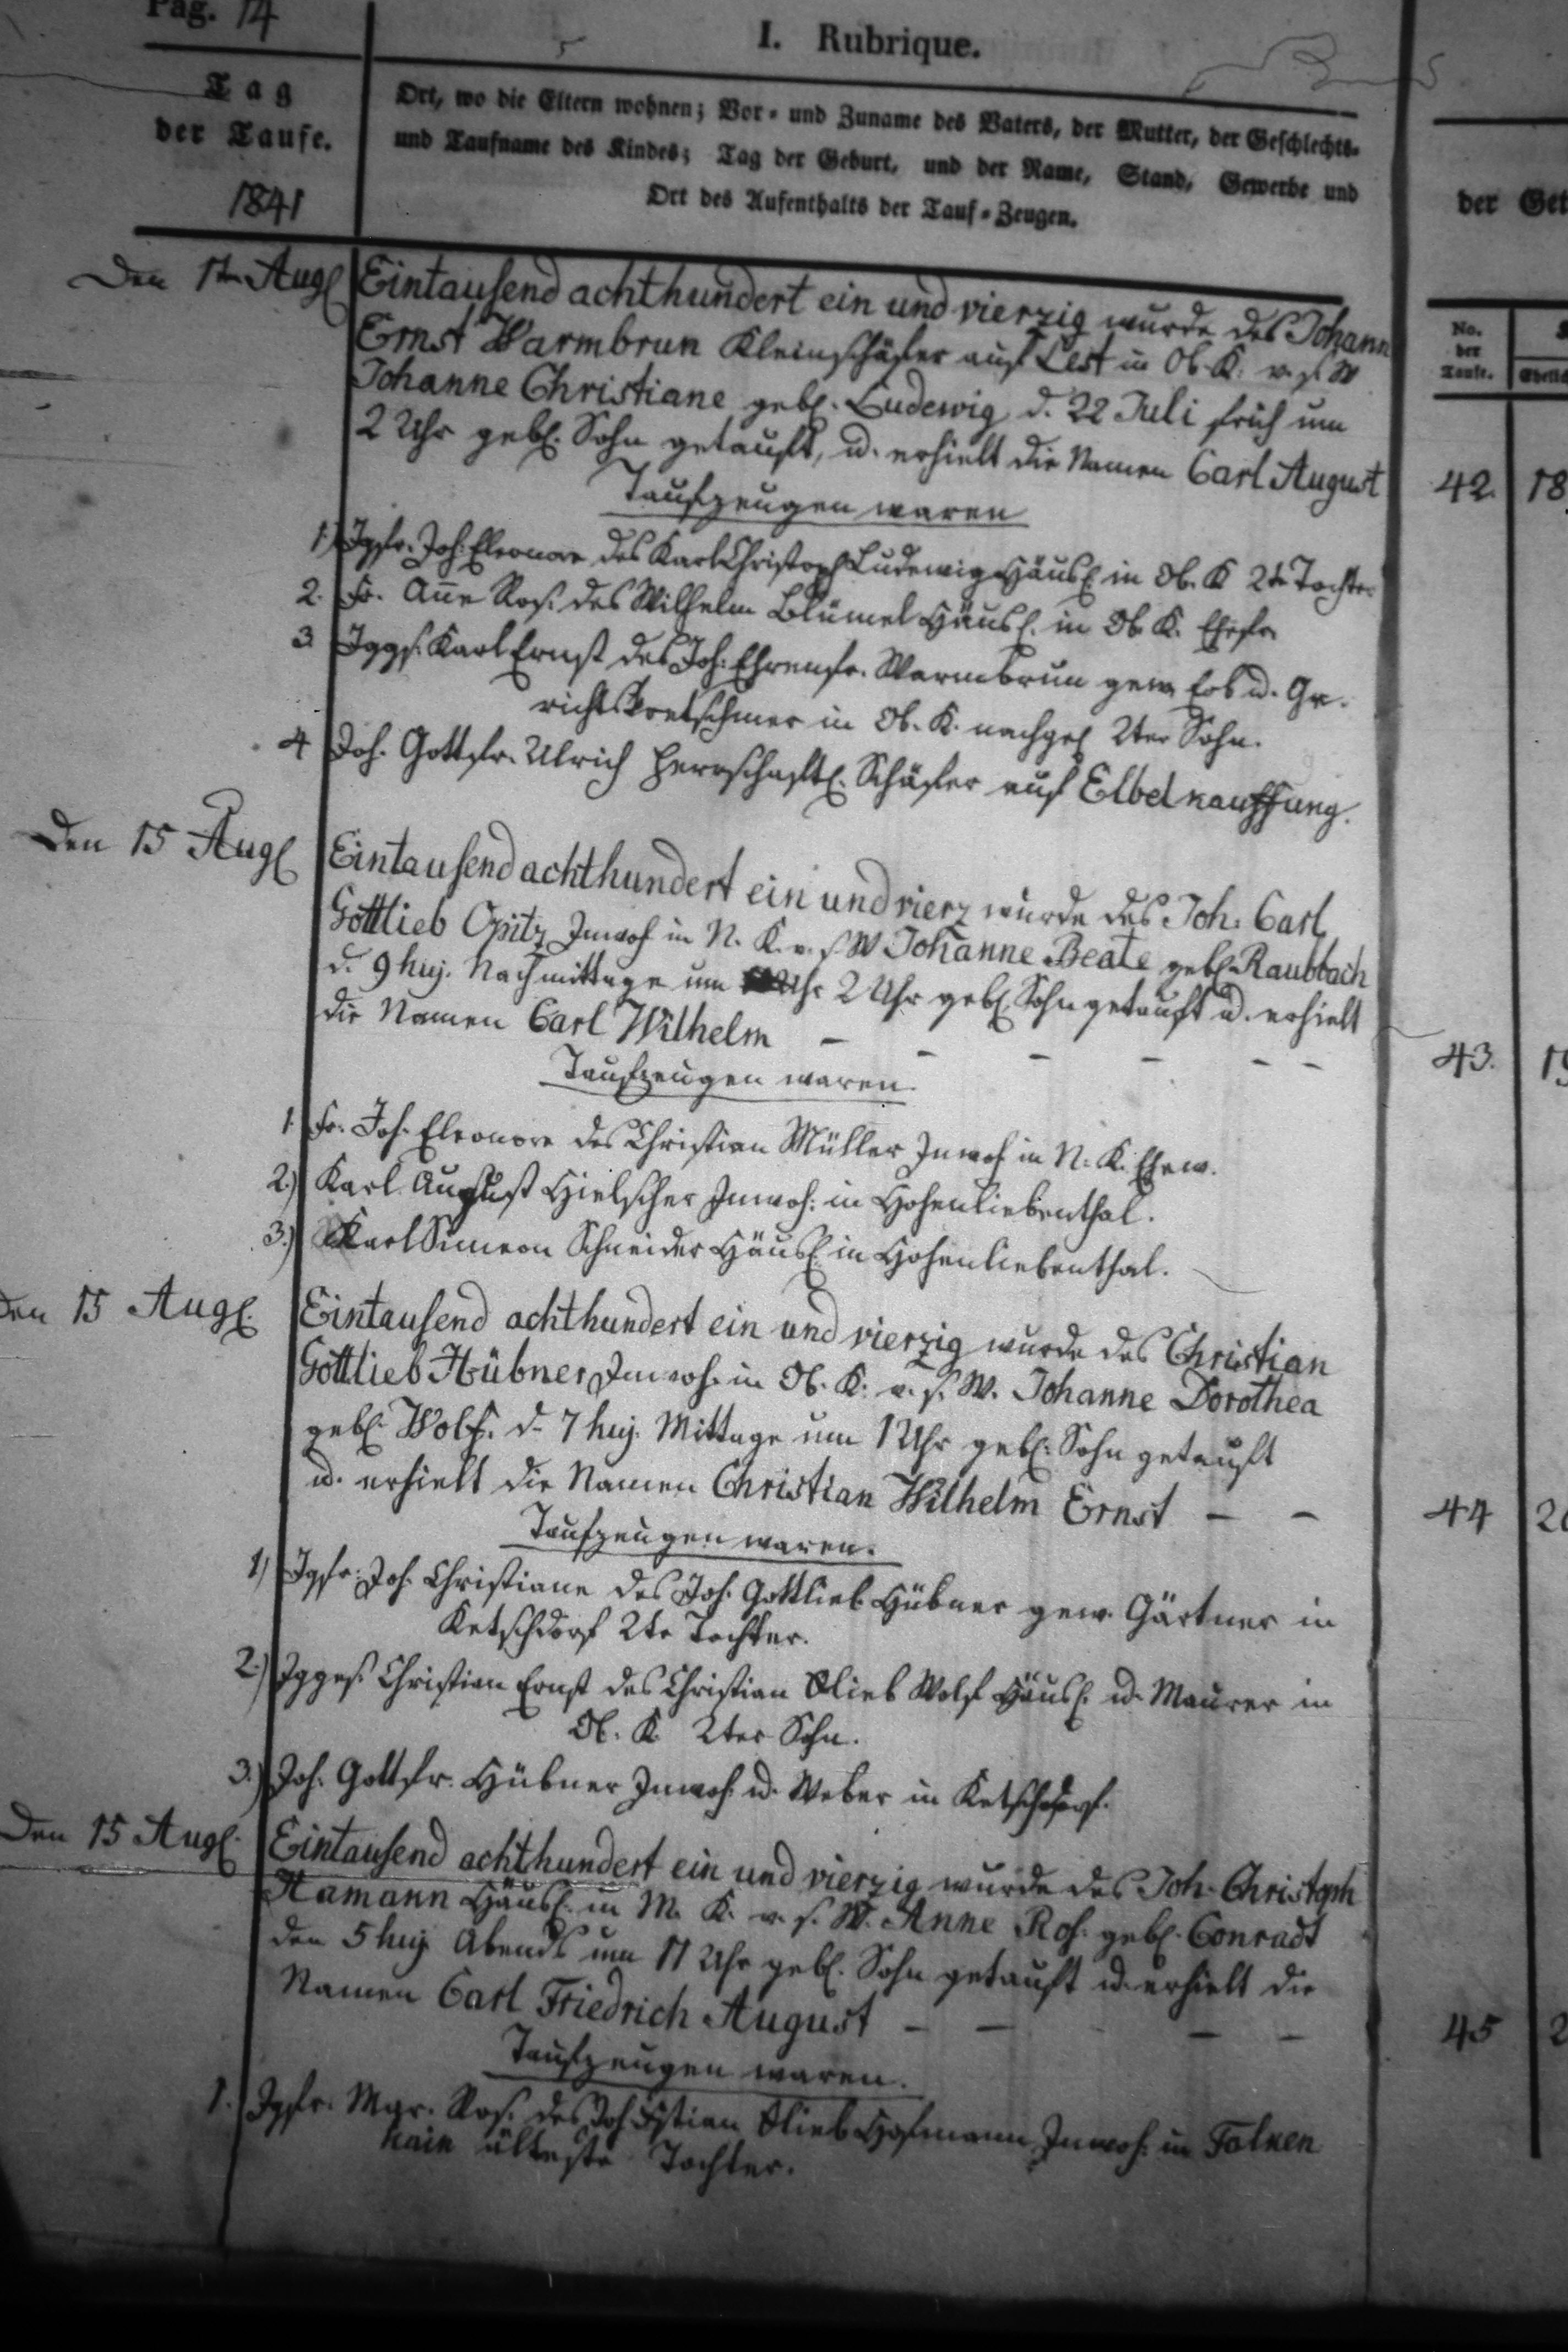 Pag. 14
I. Rubrique.
Tag
der Taufe.
1841
Ort, wo die Eltern wohnen; Vor- und Zuname des Vaters, der Mutter, der Geschlechts-
und Taufname des Kindes; Tag der Geburt, und der Name, Stand, Gewerbe und
Ort des Aufenthalts der Tauf-Zeugen.
der Get
No.
der
Taufe.
Den 1ten Augl
Eintausend achthundert ein und vierzig wurde des Johann
Ernst Warmbrun Kleinschäfer auf Lest in Ob. K. v. s. W
Johanne Christiane gebl. Ludewig d. 22 Juli früh um
2 Uhr gebl. Sohn getauft, u. erhielt die Namen Carl August
42. 18
Taufzeugen waren
1.) Jgfr. Joh. Eleonore des Karl Christoph Ludewig Häusl. in Ob. K 2te Tochter
2. Fr. Anne Ros. des Wilhelm Blümel Häusl. in Ob. K. Ehefr.
3 Jggs. Karl Ernst des Joh. Ehrenfr. Warmbrun gew. Erb u. Ge-
richtskretschmer in Ob. K. nachgel 2ter Sohn.
4 Joh. Gottfr. Ulrich herrschaftl. Schäfer auf Elbelkauffung.
Den 15 Augl
Eintausend achthundert ein und vierz wurde des Joh. Carl
Gottlieb Opitz Inwoh in N. K. v. s W Johanne Beate gebl. Raubbach
d. 9 huj. Nachmittage um Uhr 2 Uhr gebl. Sohn getauft u. erhielt
die Namen Carl Wilhelm - - - - - -
43. 19
Taufzeugen waren.
1. Fr. Joh. Eleonore des Christian Müller Inwoh in N. K. Ehew.
2.) Karl August Hielscher Inwoh: in Hohenliebenthal.
3.) Karl Simeon Schneider Häusl. in Hohenliebenthal.
Den 15 Augl.
Eintausend achthundert ein und vierzig wurde des Christian
Gottlieb Hübner Inwoh. in Ob. K. v. s. W. Johanne Dorothea
gebl. Wolf. d. 7 huj. Mittage um 1 Uhr gebl. Sohn getauft
u. erhielt die Namen Christian Wilhelm Ernst - -
44 20
Taufzeugen waren.
1) Jgfr. Joh. Christiane des Joh. Gottlieb Hübner gew. Gärtner in
Ketschdorf 2te Tochter.
2.) Jgges. Christian Ernst des Christian Glieb Wolf Häusl. u. Maurer in
Ob. K. 2ter Sohn.
3.) Joh. Gottfr. Hübner Inwoh. u. Weber in Ketschdorf.
Den 15 Augl.
Eintausend achthundert ein und vierzig wurde des Joh. Christoph
Hamann Häusl. in M. K. v. s. W. Anne Ros. gebl. Conradt
den 5 huj. Abends um 11 Uhr gebl. Sohn getauft u. erhielt die
Namen Carl Friedrich August - - - -
45 2
Taufzeugen waren.
1. Jgfr. Mar. Ros. des Joh Glieb Hofmann Inwoh. in Falken
hain älteste Tochter.